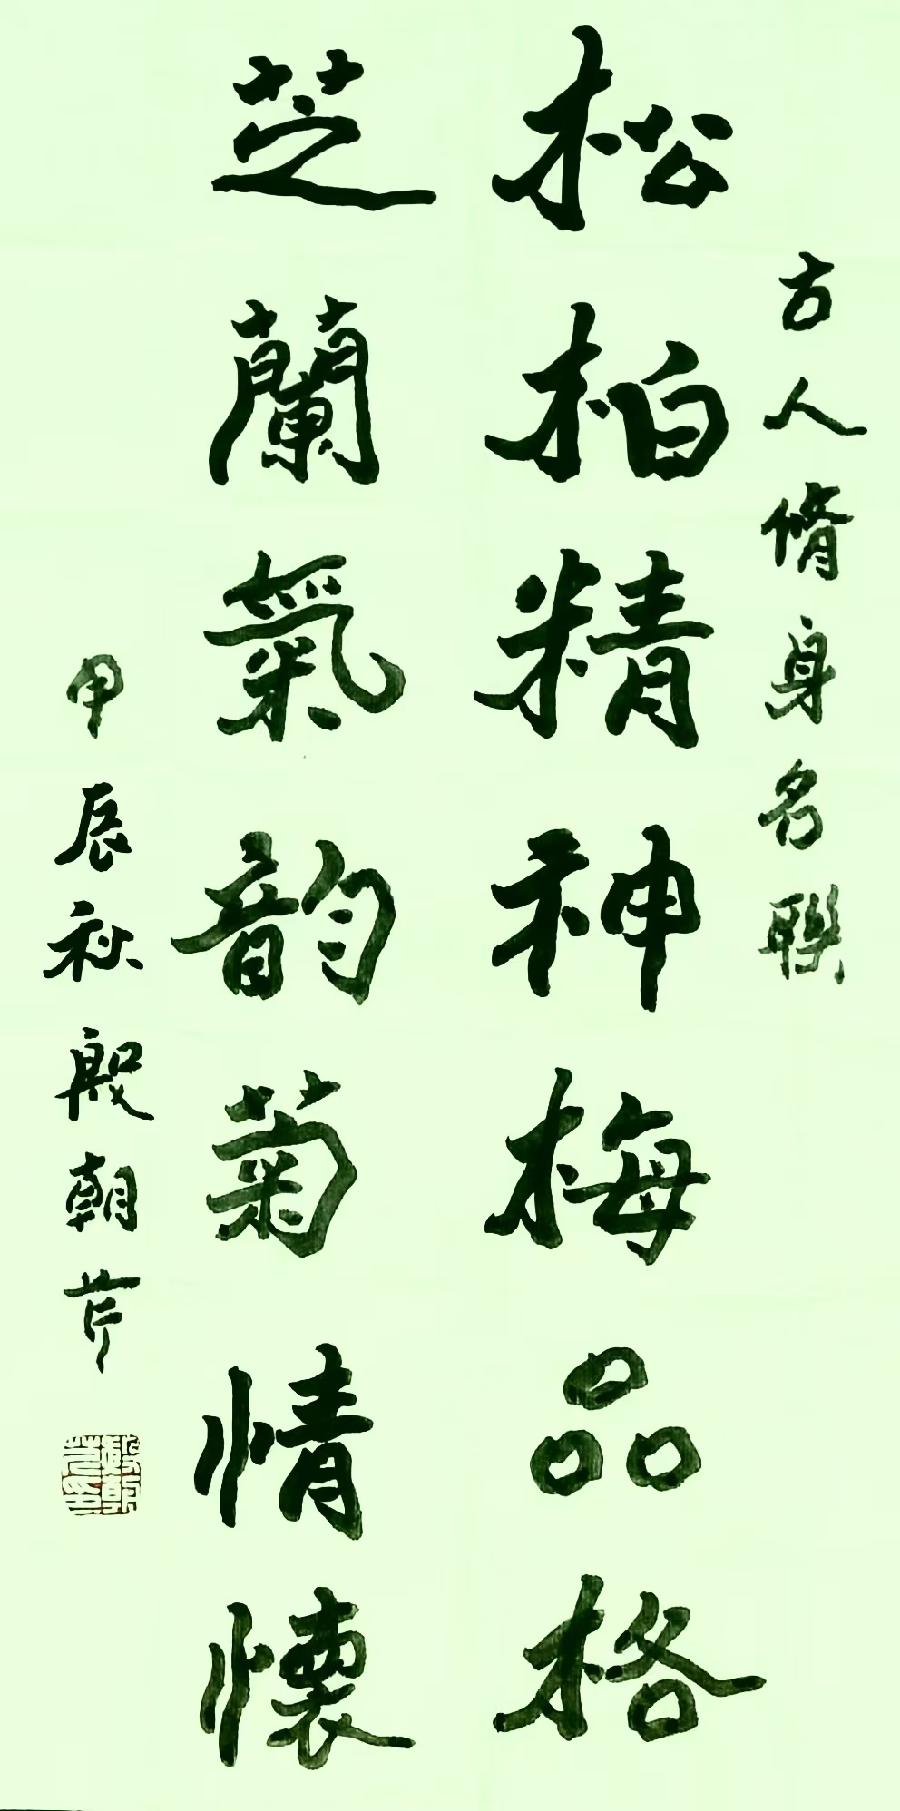 古人脩身名聯
松柏精神梅品格
芝蘭氣韵菊情懷
甲辰秋殷朝芹